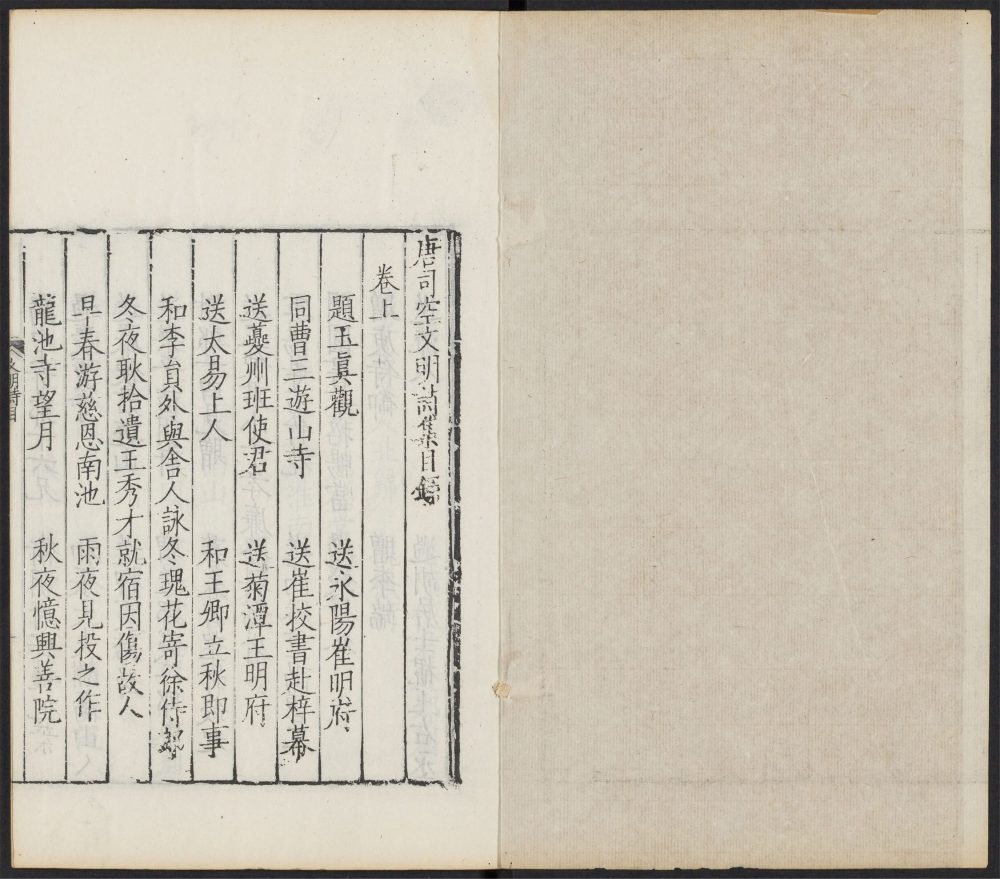 唐司空文明詩集目錄
卷上
題玉眞觀 送永陽崔明府
同曹三遊山寺 送崔挍書赴梓幕
送夔州班使君 送菊潭王明府
送太易上人 和王卿立秋即事
和李貟外與舍人詠冬瑰花寄徐侍郎
冬夜耿拾遺王秀才就宿因傷故人
早春游慈恩南池 雨夜見投之作
龍池寺望月 秋夜憶興善院
文明詩目